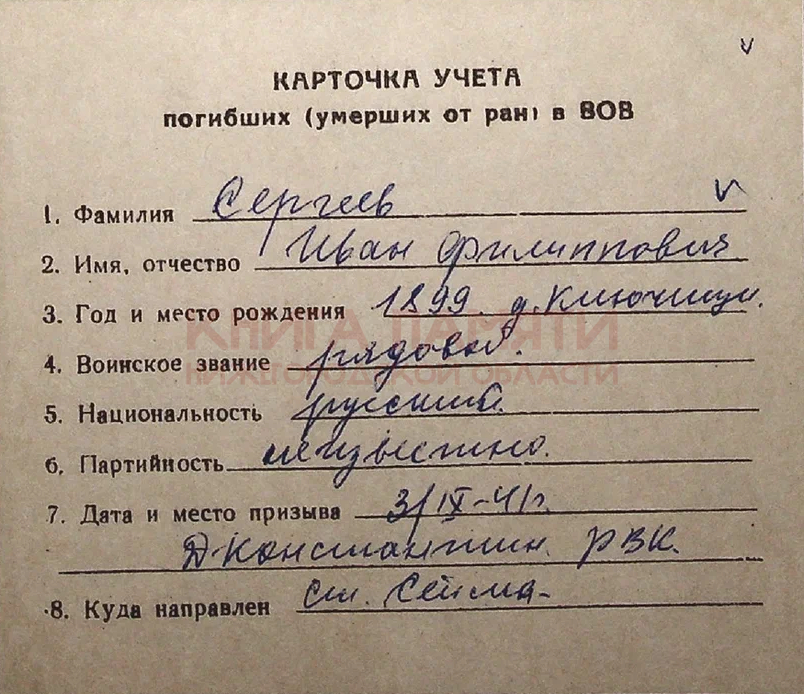 V
КАРТОЧКА УЧЕТА
погибших (умерших от ран) в ВОВ
1. Фамилия Сергеев V
2. Имя, отчество Иван Филиппович
3. Год и место рождения 1899 д. Ключищи.
КНИГА ПАМЯТИ
4. Воинское звание рядовой.
НИЖЕГОРОДСКОЙ ОБЛАСТИ
5. Национальность русский.
6. Партийность неизвестно.
7. Дата и место призыва 3/IX-41г.
Д-Константин. РВК.
8. Куда направлен ст. Сейма-